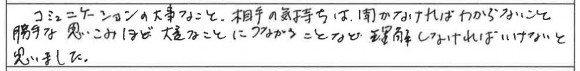 コミュニケーションの大事なこと、相手の気持ちは、聞かなければわからないこと
勝手な思いこみほど大変なことにつながることなど理解しなければいけないと
思いました。